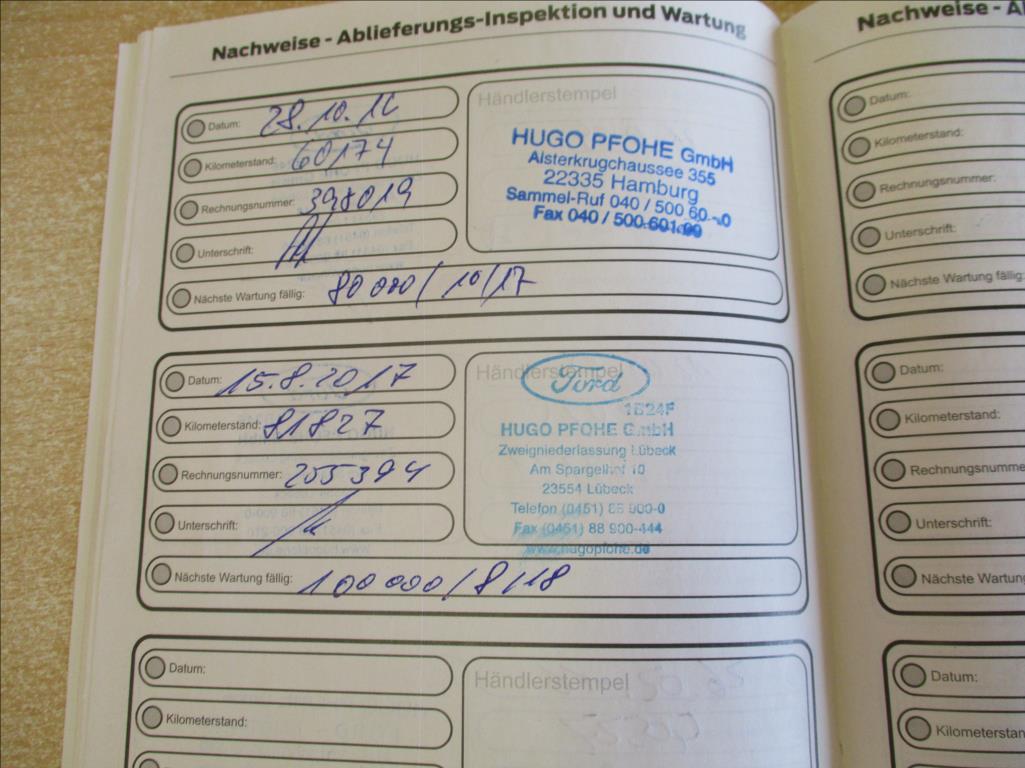 Nachweise - Ablieferungs-Inspektion und Wartung
Datum: 28.10.16
Kilometerstand: 60174
Rechnungsnummer: 398019
Unterschrift:
Nächste Wartung fällig: 80 000 / 10/17
Händlerstempel
HUGO PFOHE GmbH
Alsterkrugchaussee 355
22335 Hamburg
Sammel-Ruf 040 / 500 60-0
Fax 040 / 500 601 99
Datum: 15.8.2017
Kilometerstand: 81827
Rechnungsnummer: 255394
Unterschrift:
Nächste Wartung fällig: 100 000 / 8/18
Händlerstempel
Ford
1B24F
HUGO PFOHE GmbH
Zweigniederlassung Lübeck
Am Spargelhof 10
23554 Lübeck
Telefon (0451) 88 900-0
Fax (0451) 88 900-444
www.hugopfohe.de
Datum:
Kilometerstand:
Händlerstempel
Nachweise -
Datum:
Kilometerstand:
Rechnungsnummer:
Unterschrift:
Nächste Wartung fällig:
Datum:
Kilometerstand:
Rechnungsnumme
Unterschrift:
Nächste Wartung
Datum:
Kilometerstan